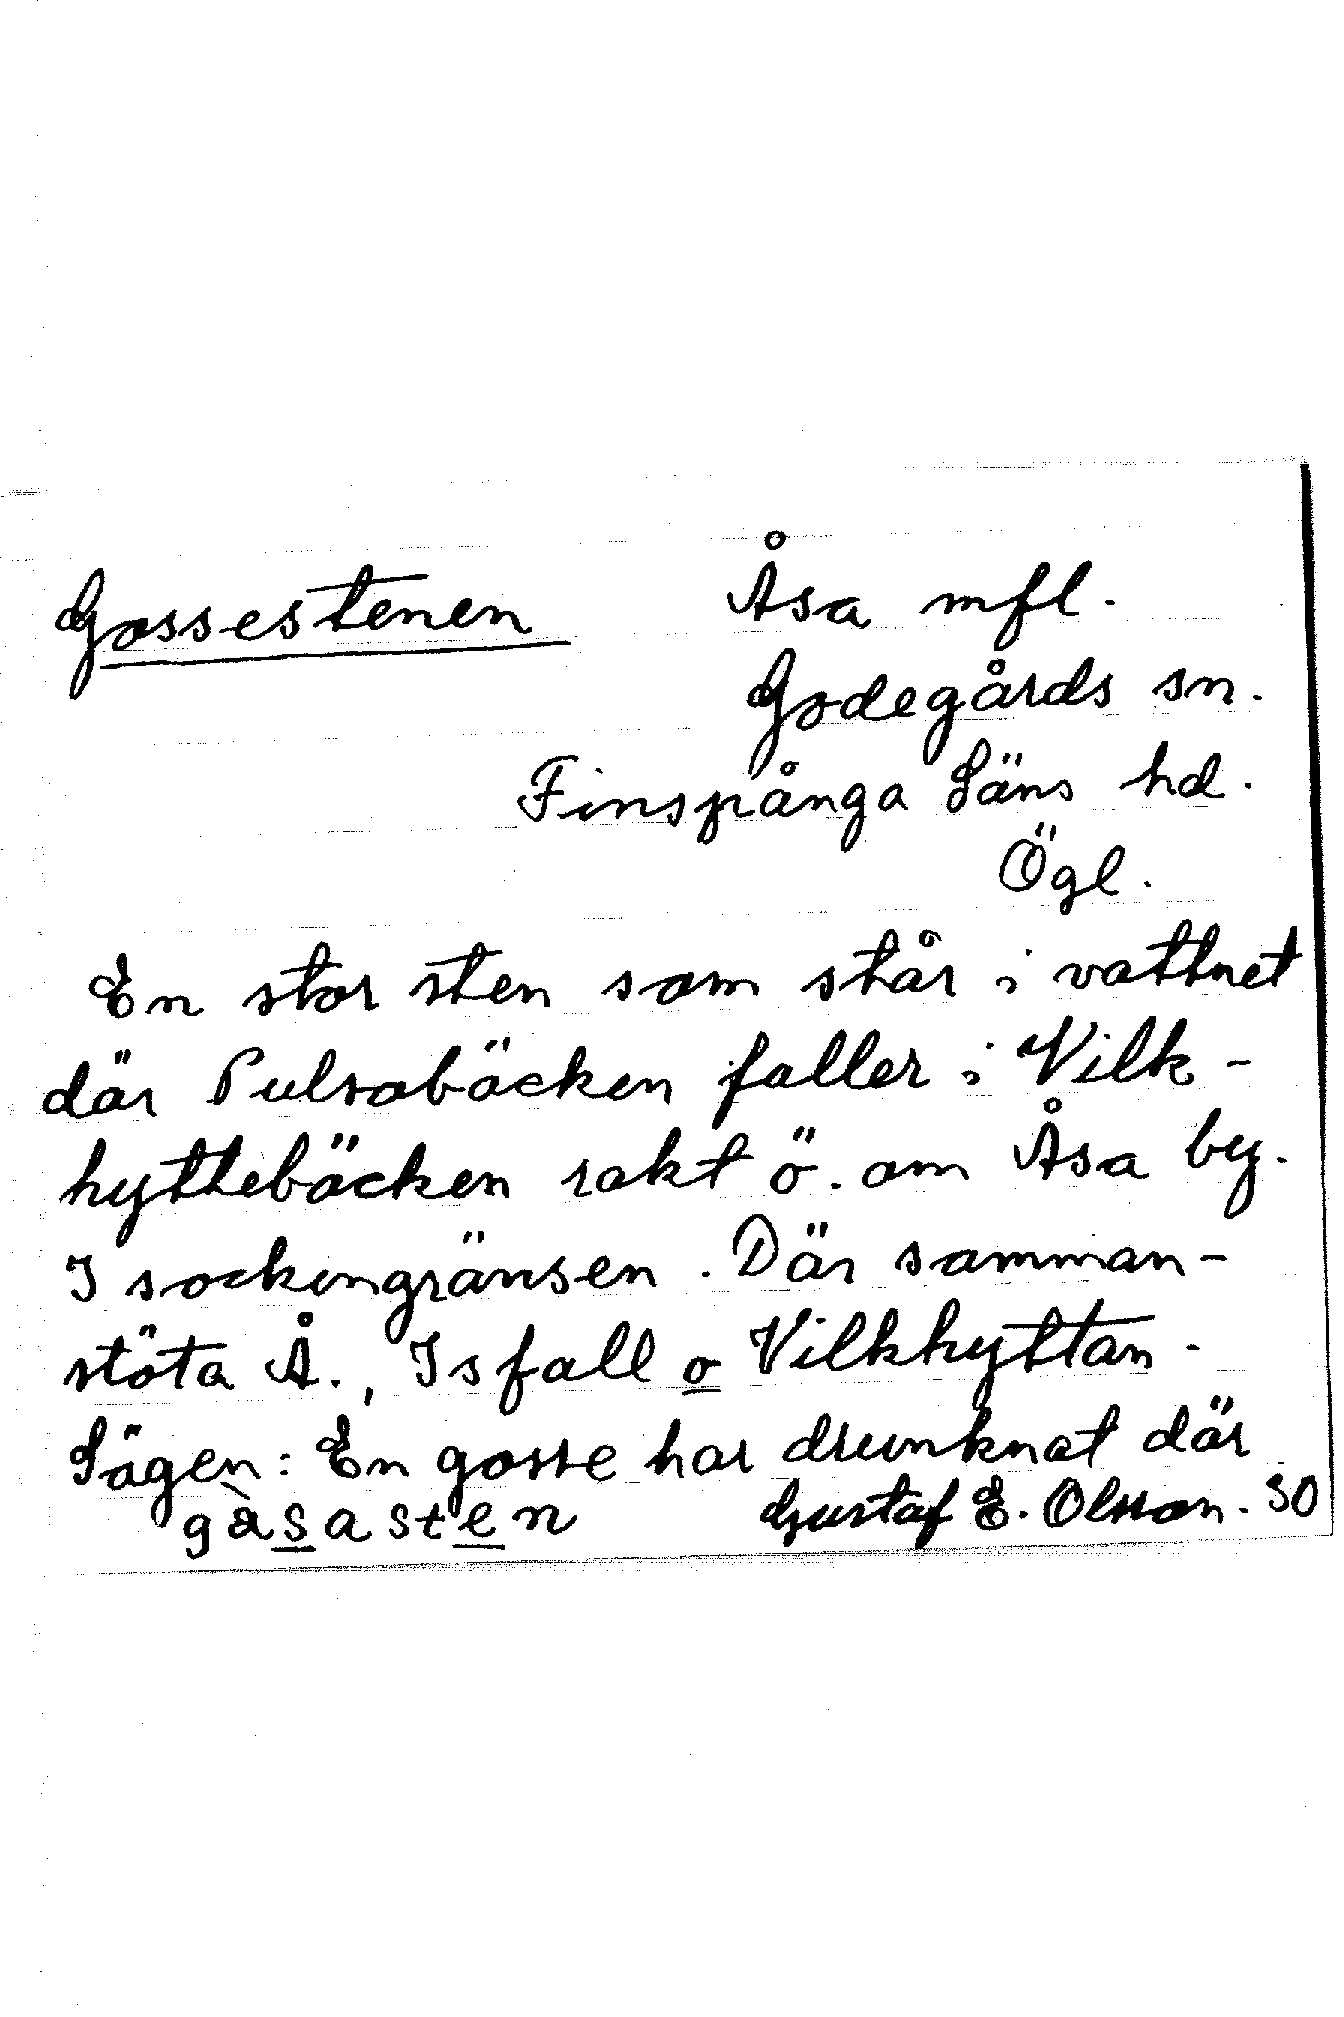 Gossestenen Åsa mfl.
Godegårds sn.
Finspånga Läns hd.
Ögl.
En stor sten som står i vattnet
där Pulsabäcken faller i Vilk-
hyttebäcken rakt ö. om Åsa by.
I sockengränsen. Där samman-
stöta Å., Isfall o Vilkhyttan.
Sägen: En gosse har drunknat där
gàsasten Gustaf E. Olsson. 30